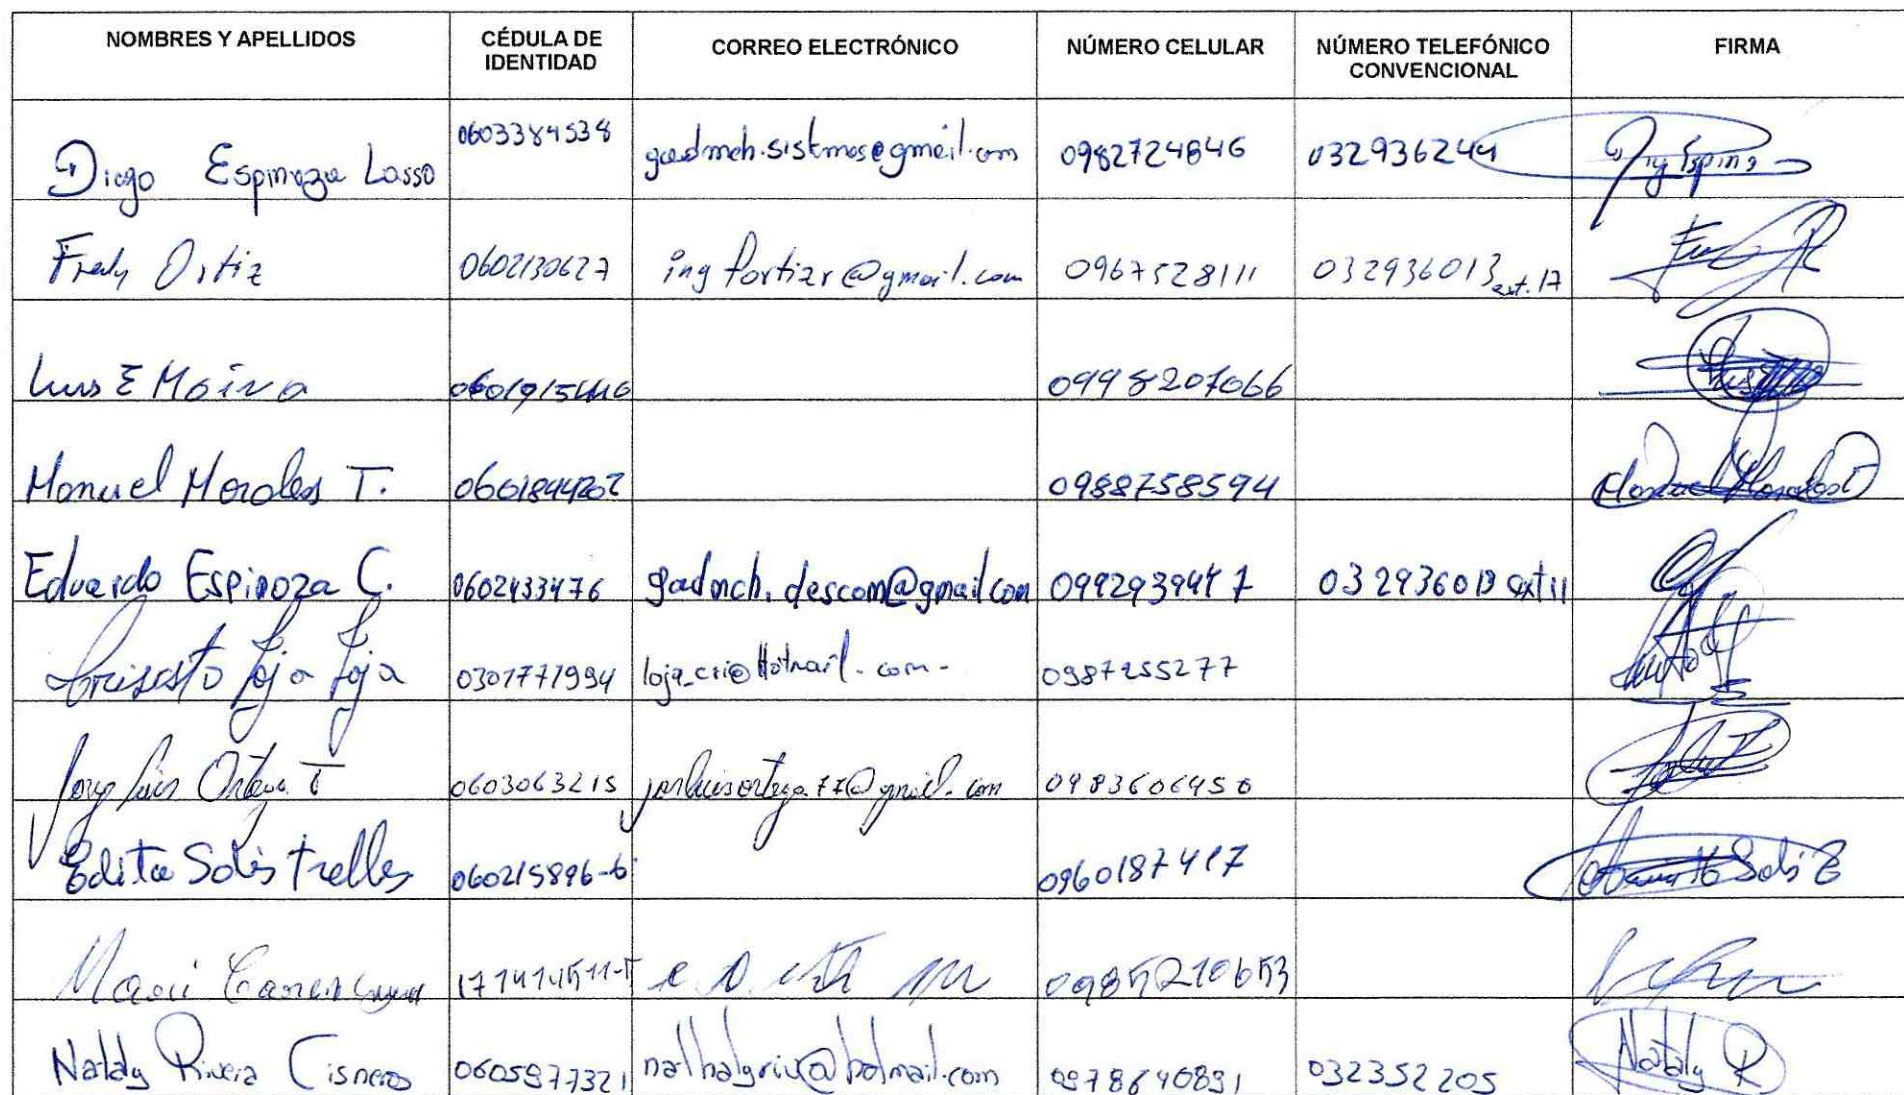 NOMBRES Y APELLIDOS CÉDULA DE IDENTIDAD CORREO ELECTRÓNICO NÚMERO CELULAR NÚMERO TELEFÓNICO CONVENCIONAL FIRMA
Diego Espinoza Lasso 0603384538 gadmch.sistmas@gmail.com 0982724846 032936244
Fredy Ortiz 0602130627 ingfortizr@gmail.com 0967528111 032936013 ext. 17
Luis E 0998207066
Manuel Morales T. 0601844202 0988758594 Manuel Morales T
Eduardo Espinoza C. 0602433476 gadmch.descom@gmail.com 0992939447 032936013 ext 11
Crisosto Loja Loja 0301777994 loja_cri@Hotmail.com- 0987255277
Jorge Luis Ortega T 0603063215 jorluisortega77@gmail.com 0983606450
Edita Solis Trelles 060215896-6 0960187417 Solis
0985210653
Nataly Rivera Cisneros 0605977321 nathalyriv@hotmail.com 0978640891 032352205 Nataly R